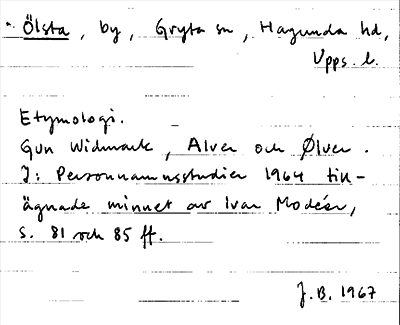 Ölsta, by, Gryta sn, Hagunda hd,
Upps. l.
Etymologi.
Gun Widmark, Alver och Ølver.
I: Personnamnsstudier 1964 till-
ägnade minnet av Ivar Modéer,
s. 81 och 85 ff.
J.B. 1967